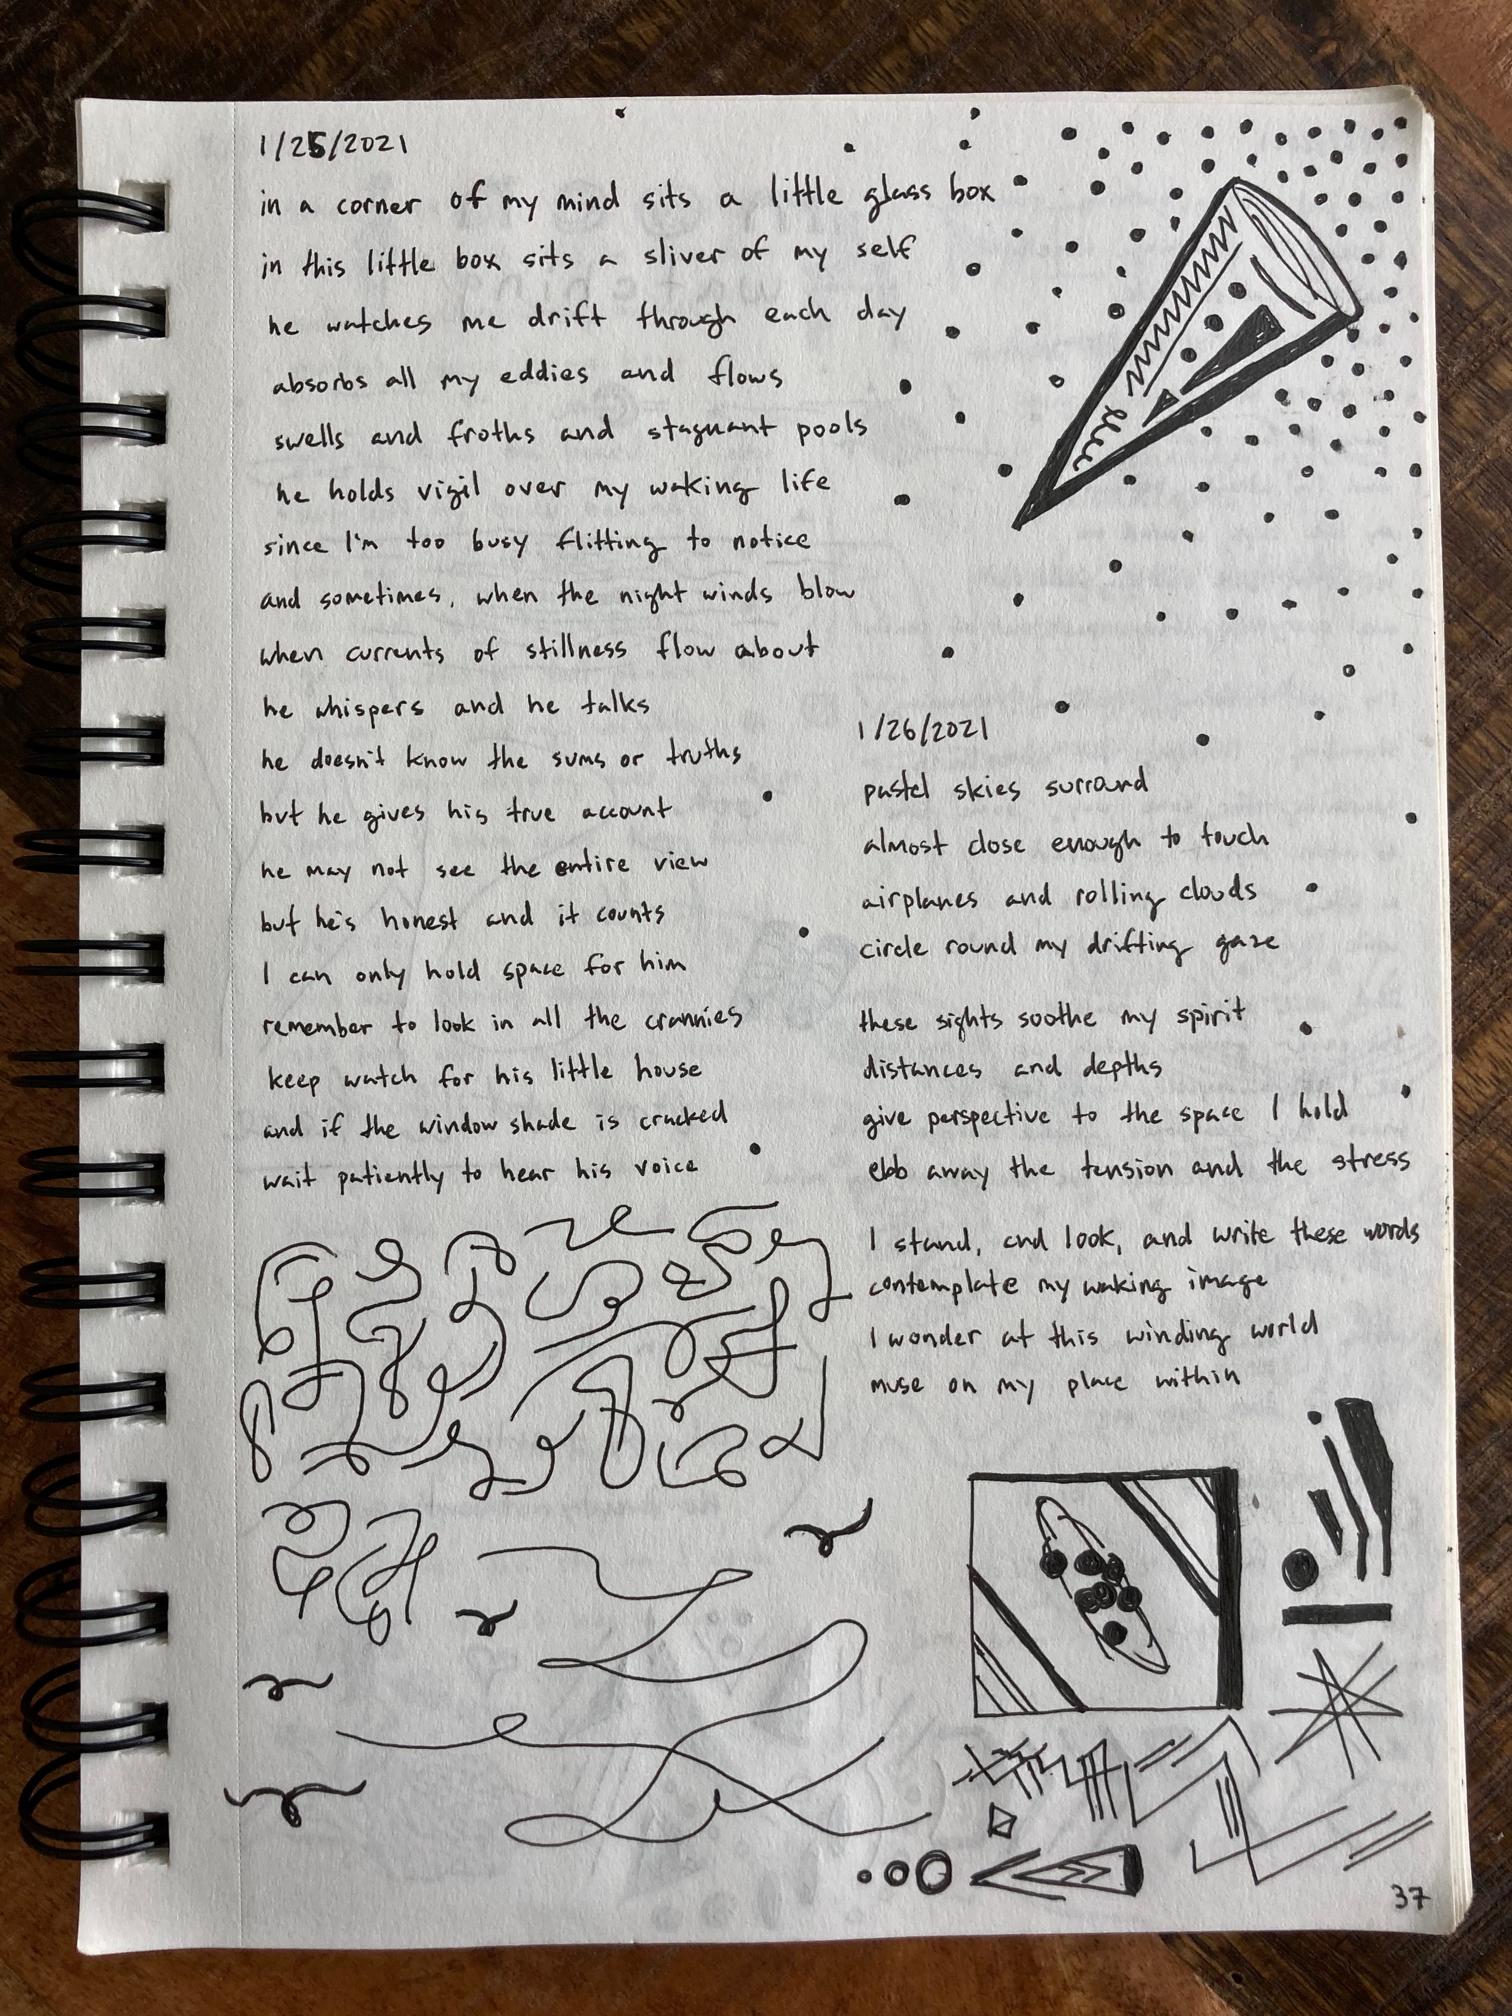 1/25/2021
in a corner of my mind sits a little glass box
in this little box sits a sliver of my self
he watches me drift through each day
absorbs all my eddies and flows
swells and froths and stagnant pools
he holds vigil over my waking life
since I'm too busy flitting to notice
and sometimes, when the night winds blow
when currents of stillness flow about
he whispers and he talks
he doesn't know the sums or truths
but he gives his true account
he may not see the entire view
but he's honest and it counts
I can only hold space for him
remember to look in all the crannies
keep watch for his little house
and if the window shade is cracked
wait patiently to hear his voice
1/26/2021
pastel skies surround
almost close enough to touch
airplanes and rolling clouds
circle round my drifting gaze
these sights soothe my spirit
distances and depths
give perspective to the space I hold
ebb away the tension and the stress
I stand, and look, and write these words
contemplate my waking image
I wonder at this winding world
muse on my place within
37